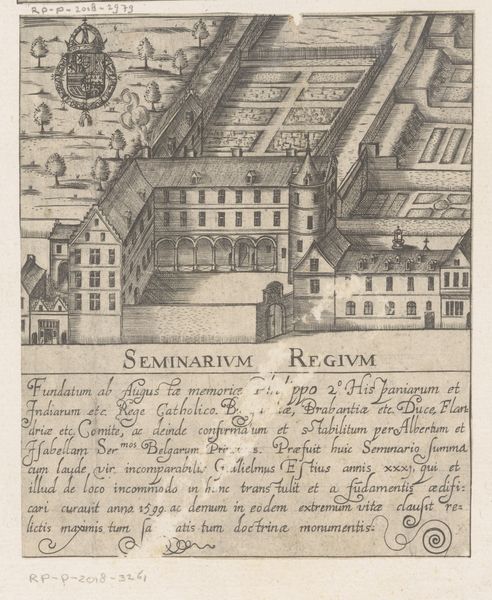 RP-P-2018-2979
SEMINARIVM REGIVM
Fundatum ab Augustæ memoriæ Philippo 2º Hispaniarum et
Indiarum etc. Rege Catholico. Brabantiæ etc. Duce, Flan
driæ etc. Comite, ac deinde confirmatum et stabilitum per Albertum et
Isabellam Sermos Belgarum Præfuit huic Seminario summa
cum laude vir incomparabilis Gulielmus Estius annis xxxj, qui et
illud de loco incommodo in hunc transtulit et a fũdamentis ædifi-
cari curavit anno 1599. ac demum in eodem extremum vitæ clausit re-
lictis maximis tum tum doctrinæ monumentis.
RP-P-2018-3261